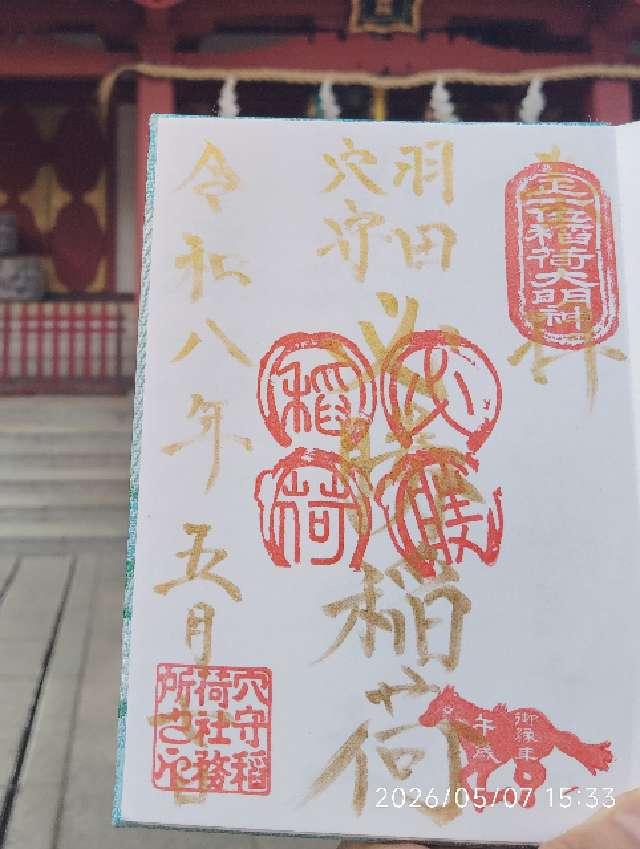 奉拝
正一位稲荷大明神
羽田
穴守
必勝稲荷
必勝
稲荷
御縁年
午歳
令和八年五月七日
穴守稲
荷社務
所之印
2026/05/07 15:33